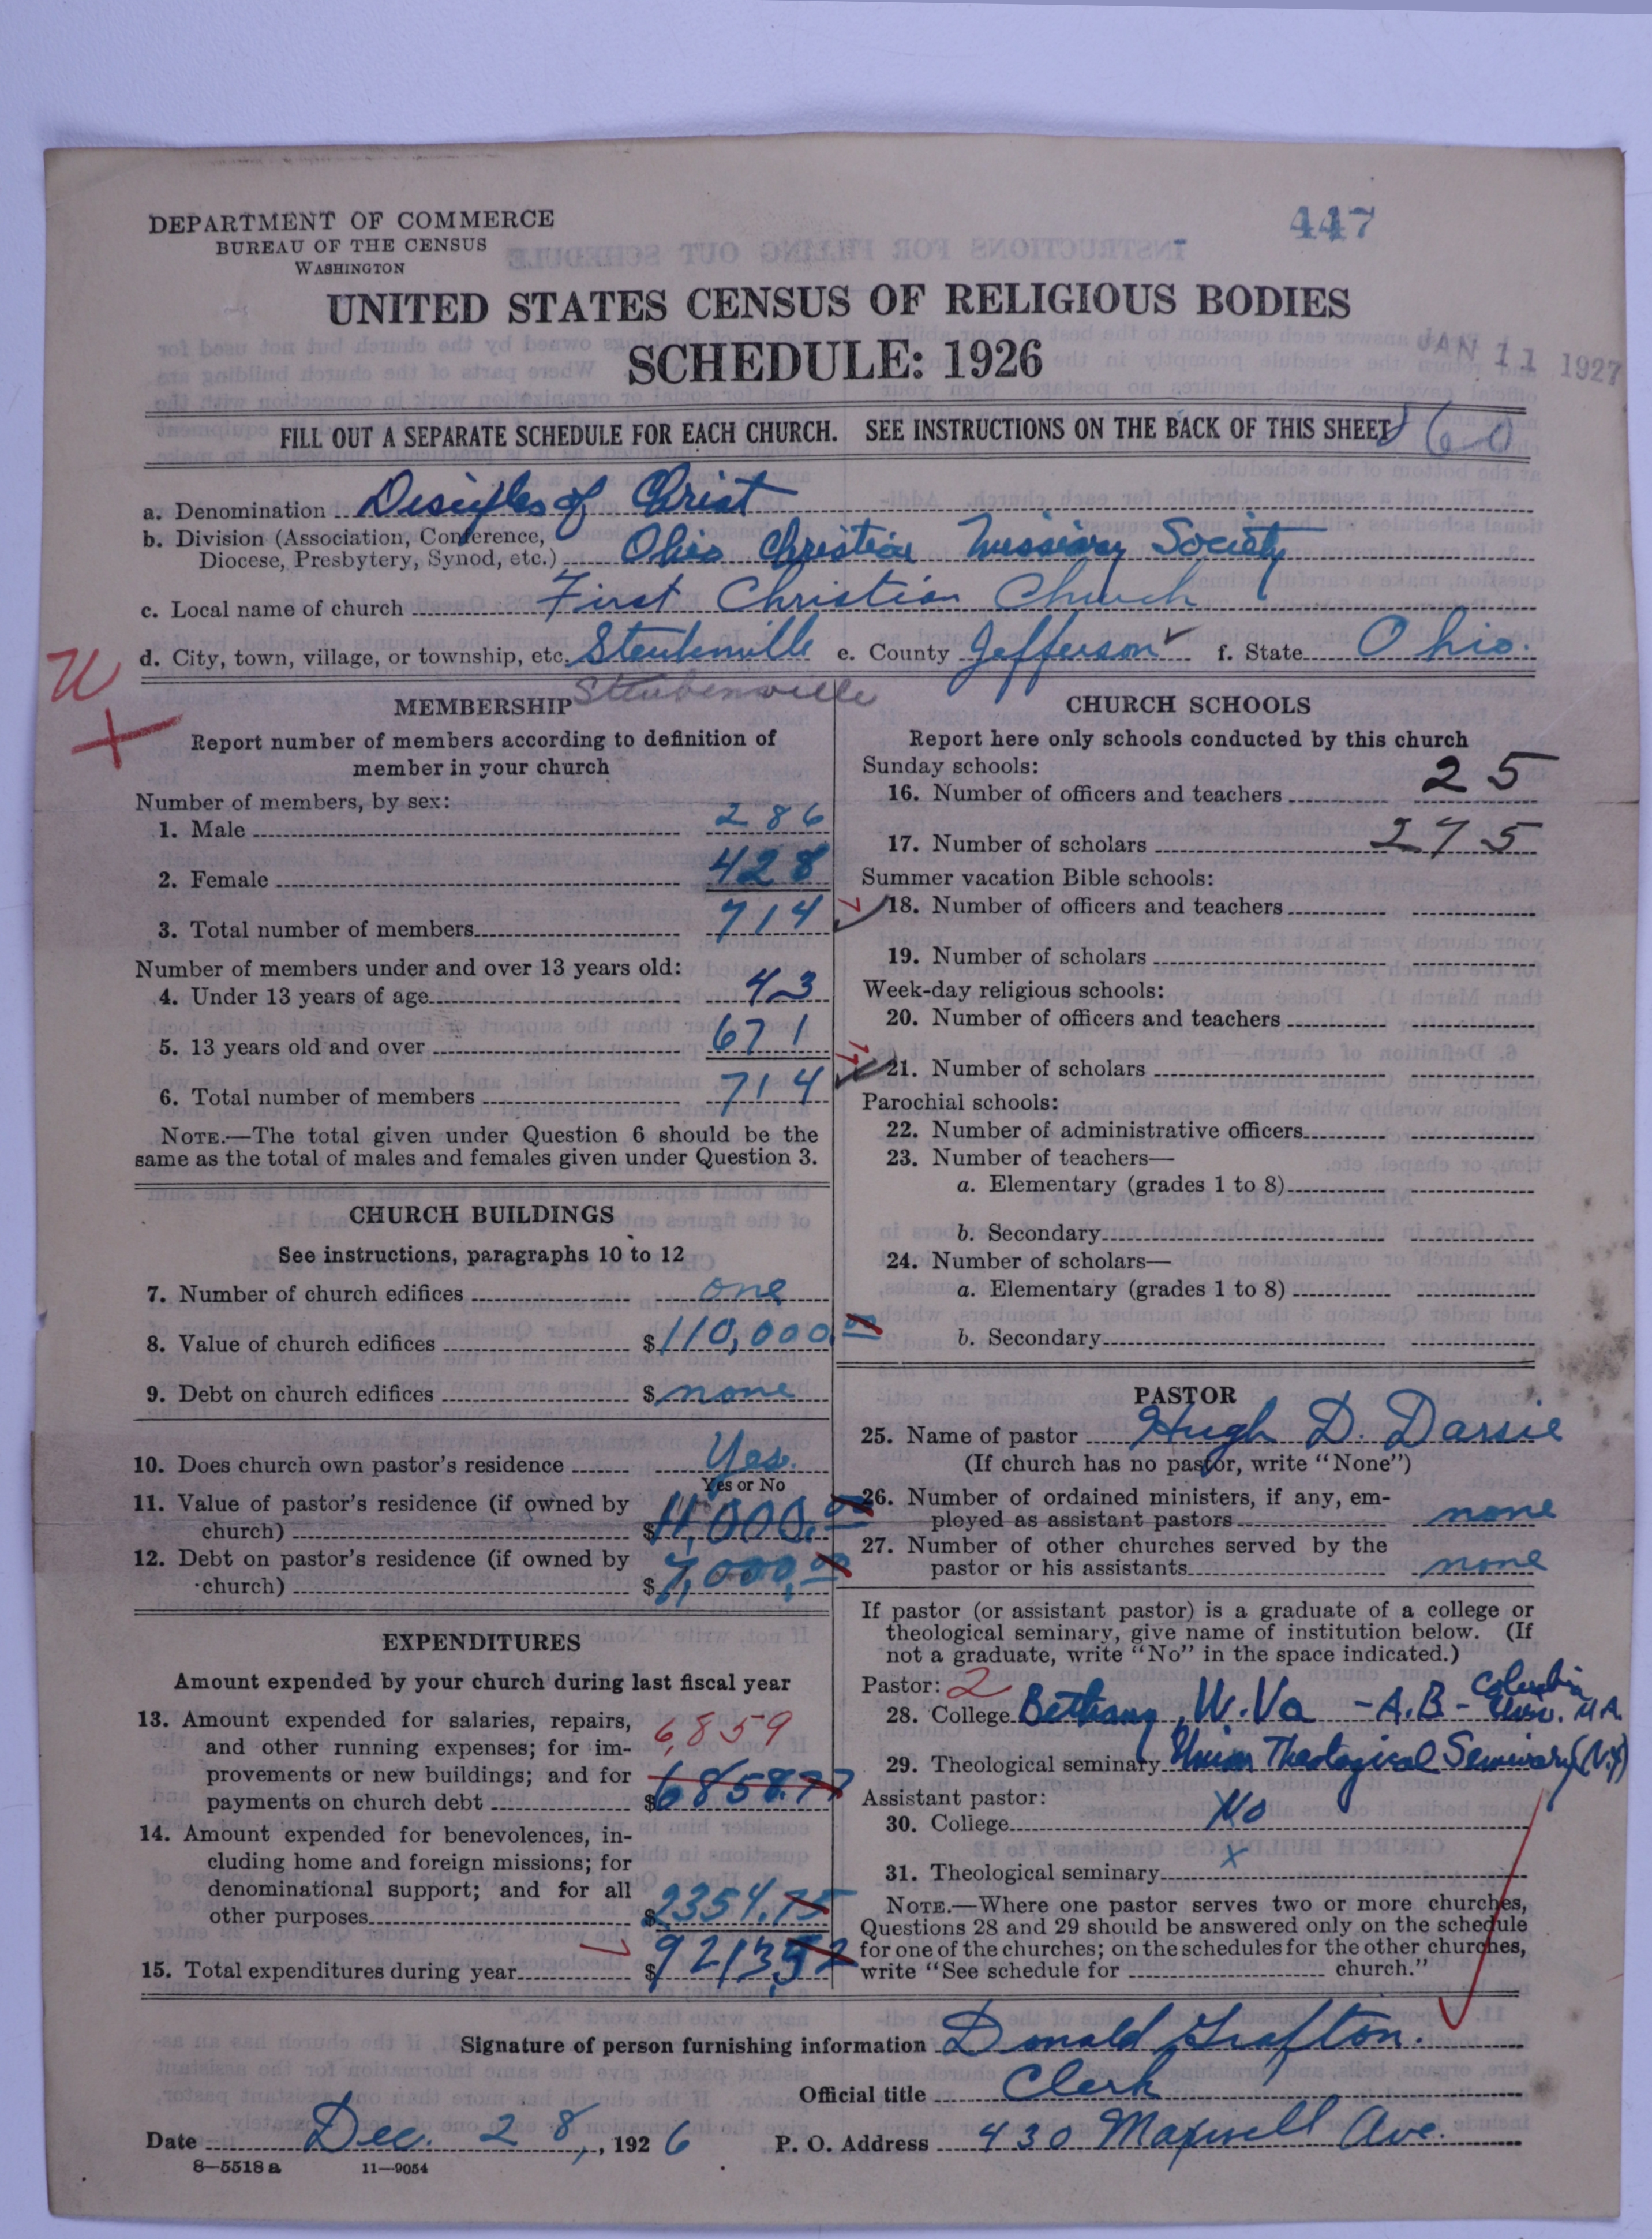 DEPARTMENT OF COMMERCE
BUREAU OF THE CENSUS
WASHINGTON
447
UNITED STATES CENSUS OF RELIGIOUS BODIES
SCHEDULE: 1926
JAN 11 1927
FILL OUT A SEPARATE SCHEDULE FOR EACH CHURCH. SEE INSTRUCTIONS ON THE BACK OF THIS SHEET
a. Denomination Disciples of Christ
b. Division (Association, Conference, Diocese, Presbytery, Synod, etc.) Ohio Christian Missionary Society
c. Local name of church First Christian Church
d. City, town, village, or township, etc. Steubenville e. County Jefferson ✓ f. State Ohio.
Steubenville
MEMBERSHIP
Report number of members according to definition of
member in your church
Number of members, by sex:
1. Male 286
2. Female 428
3. Total number of members 714
Number of members under and over 13 years old:
4. Under 13 years of age 43
5. 13 years old and over 671
6. Total number of members 714
NOTE.—The total given under Question 6 should be the
same as the total of males and females given under Question 3.
CHURCH BUILDINGS
See instructions, paragraphs 10 to 12
7. Number of church edifices one
8. Value of church edifices $110,000.00
9. Debt on church edifices $none
10. Does church own pastor's residence Yes.
Yes or No
11. Value of pastor's residence (if owned by
church) $11,000.00
12. Debt on pastor's residence (if owned by
church) $7,000.00
EXPENDITURES
Amount expended by your church during last fiscal year
13. Amount expended for salaries, repairs,
and other running expenses; for im- 6,859
provements or new buildings; and for
payments on church debt $6858.77
14. Amount expended for benevolences, in-
cluding home and foreign missions; for
denominational support; and for all
other purposes $2354.75
15. Total expenditures during year $9213.52
CHURCH SCHOOLS
Report here only schools conducted by this church
Sunday schools:
16. Number of officers and teachers 25
17. Number of scholars 275
Summer vacation Bible schools:
18. Number of officers and teachers
19. Number of scholars
Week-day religious schools:
20. Number of officers and teachers
21. Number of scholars
Parochial schools:
22. Number of administrative officers
23. Number of teachers—
a. Elementary (grades 1 to 8)
b. Secondary
24. Number of scholars—
a. Elementary (grades 1 to 8)
b. Secondary
PASTOR
25. Name of pastor Hugh D. Darsie
(If church has no pastor, write "None")
26. Number of ordained ministers, if any, em-
ployed as assistant pastors none
27. Number of other churches served by the
pastor or his assistants none
If pastor (or assistant pastor) is a graduate of a college or
theological seminary, give name of institution below. (If
not a graduate, write "No" in the space indicated.)
Pastor: 2
28. College Bethany, W. Va - A.B - Columbia Univ. M.A.
29. Theological seminary Union Theological Seminary (N.Y)
Assistant pastor:
30. College No
31. Theological seminary x
NOTE.—Where one pastor serves two or more churches,
Questions 28 and 29 should be answered only on the schedule
for one of the churches; on the schedules for the other churches,
write "See schedule for church."
Signature of person furnishing information Donald Grafton.
Official title Clerk
Date Dec. 28, 1926 P. O. Address 430 Maxwell Ave.
8—5518a 11—9054